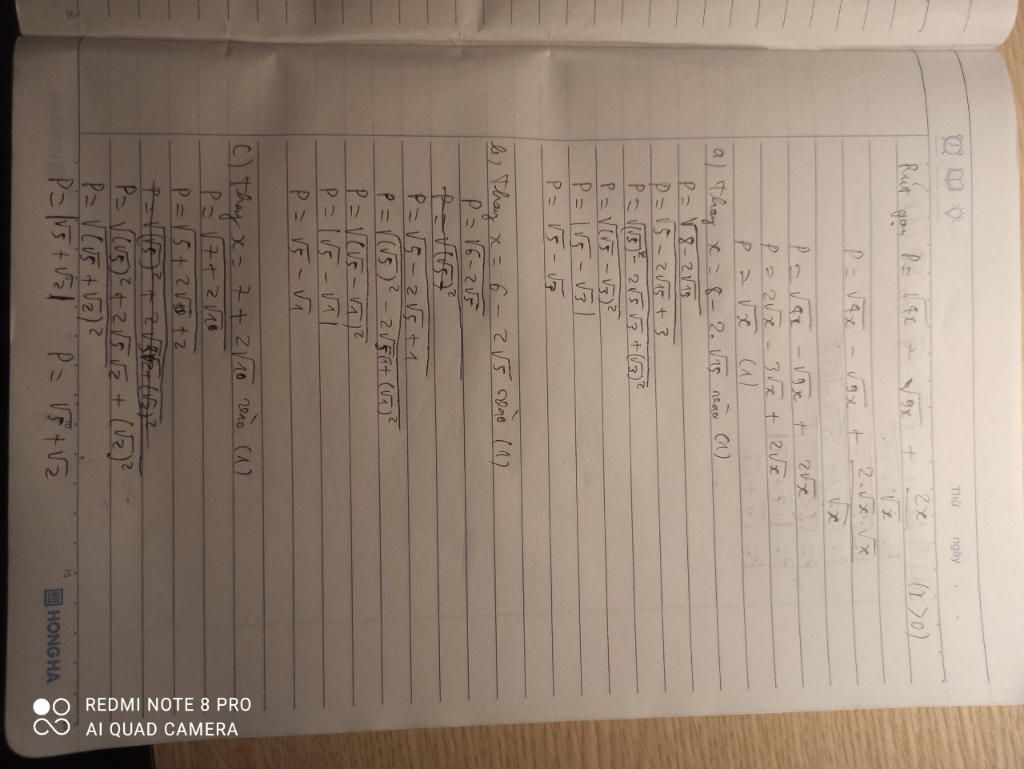 Thứ
ngày
Rút gọn P = √4x - √9x + 2x/√x (x>0)
P = √4x - √9x + 2.√x.√x/√x
P = √4x - √9x + 2√x
P = 2√x - 3√x + 2√x
P = √x (1)
a) Thay x = 8 - 2.√15 vào (1)
P = √8 - 2√15
P = √5 - 2√15 + 3
P = √(√5)² - 2√5 √3 + (√3)²
P = √(√5 - √3)²
P = |√5 - √3|
P = √5 - √3
b) Thay x = 6 - 2√5 vào (1)
P = √6 - 2√5
P = √5 - 2√5 + 1
P = √(√5)² - 2√5√1 + (√1)²
P = √(√5 - √1)²
P = |√5 - √1|
P = √5 - √1
c) Thay x = 7 + 2√10 vào (1)
P = √7 + 2√10
P = √5 + 2√10 + 2
P = √(√5)² + 2√5 √2 + (√2)²
P = √(√5 + √2)²
P = |√5 + √2| P = √5 + √2
15
HONGHA
REDMI NOTE 8 PRO
AI QUAD CAMERA